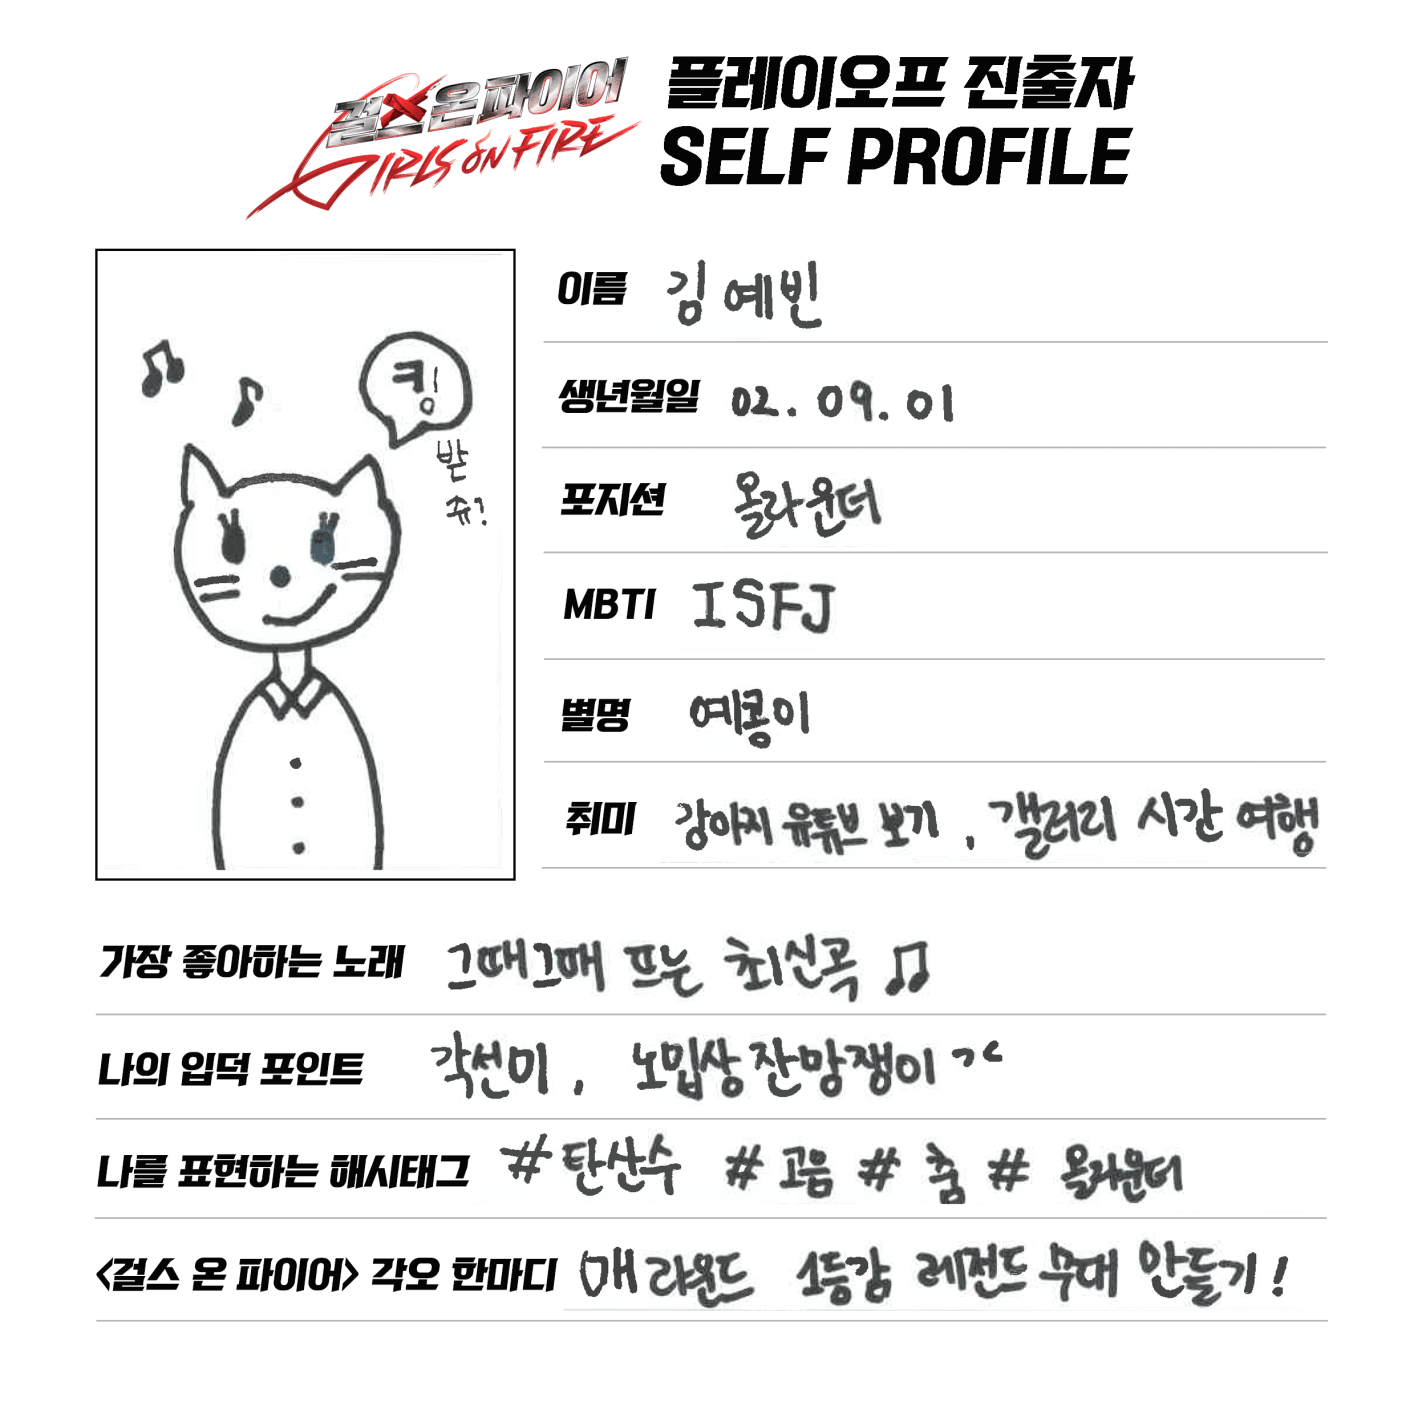 걸스온파이어
GIRLS ON FIRE
플레이오프 진출자
SELF PROFILE
킹
받
쥬?
이름 김예빈
생년월일 02. 09. 01
포지션 올라운더
MBTI ISFJ
별명 예콩이
취미 강아지 유튜브 보기, 갤러리 시간 여행
가장 좋아하는 노래 그때그때 뜨는 최신곡 ♫
나의 입덕 포인트 각선미, 노밉상 잔망쟁이 ㄱㄱ
나를 표현하는 해시태그 #탄산수 #고음 #춤 #올라운더
<걸스 온 파이어> 각오 한마디 매 라운드 1등감 레전드 무대 만들기!